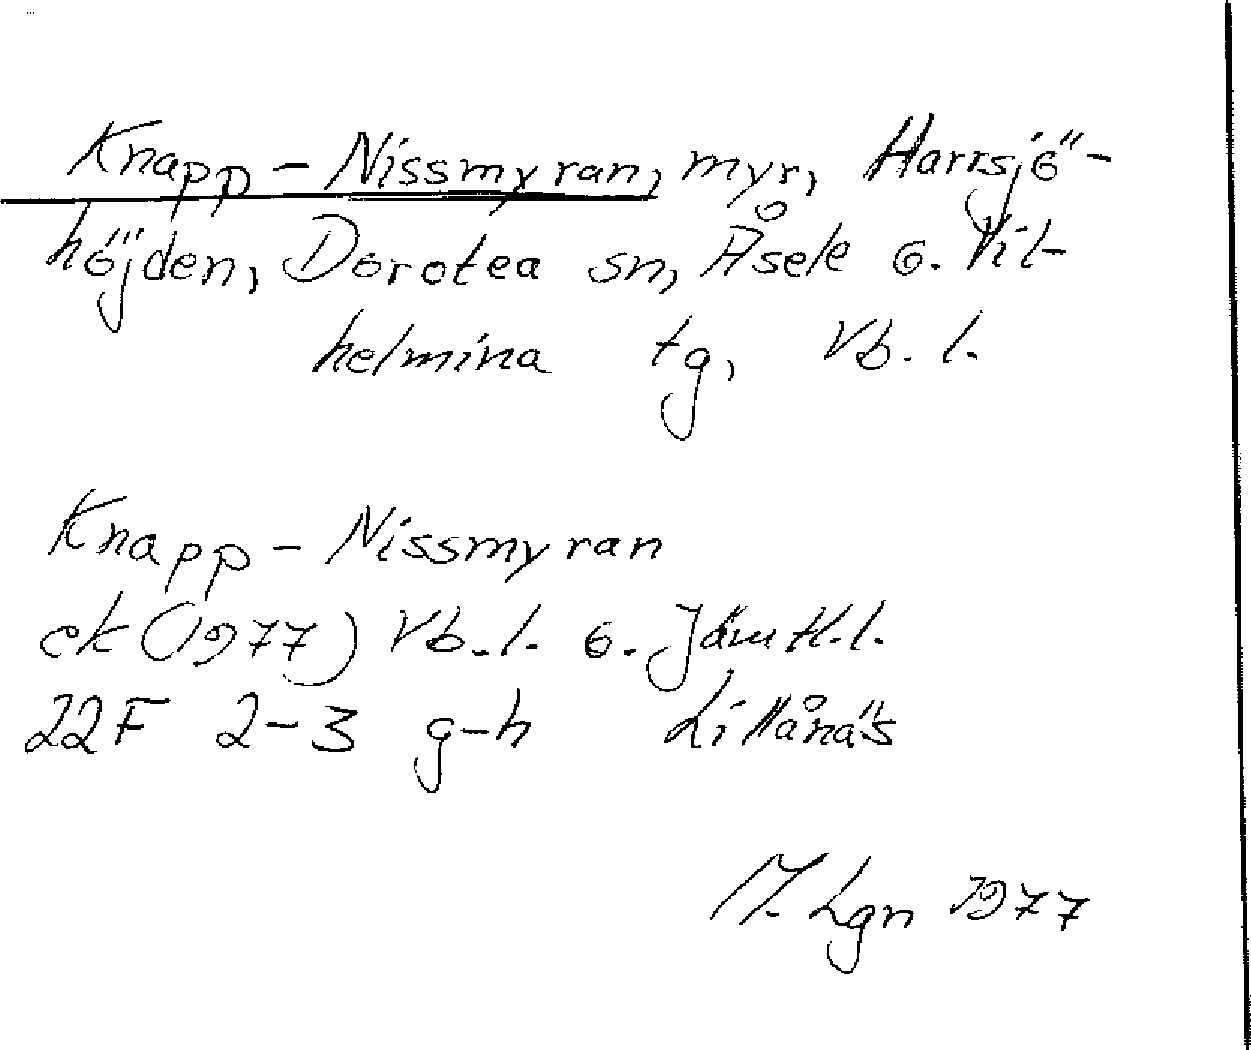 Knapp-Nissmyran, myr, Harrsjö-
höjden, Dorotea sn, Åsele o. Vil-
helmina tg, Vb. l.
Knapp-Nissmyran
ek (1977) Vb. l. o. Jämtl. l.
22F 2-3 g-h Lillånäs
M. Lgn 1977